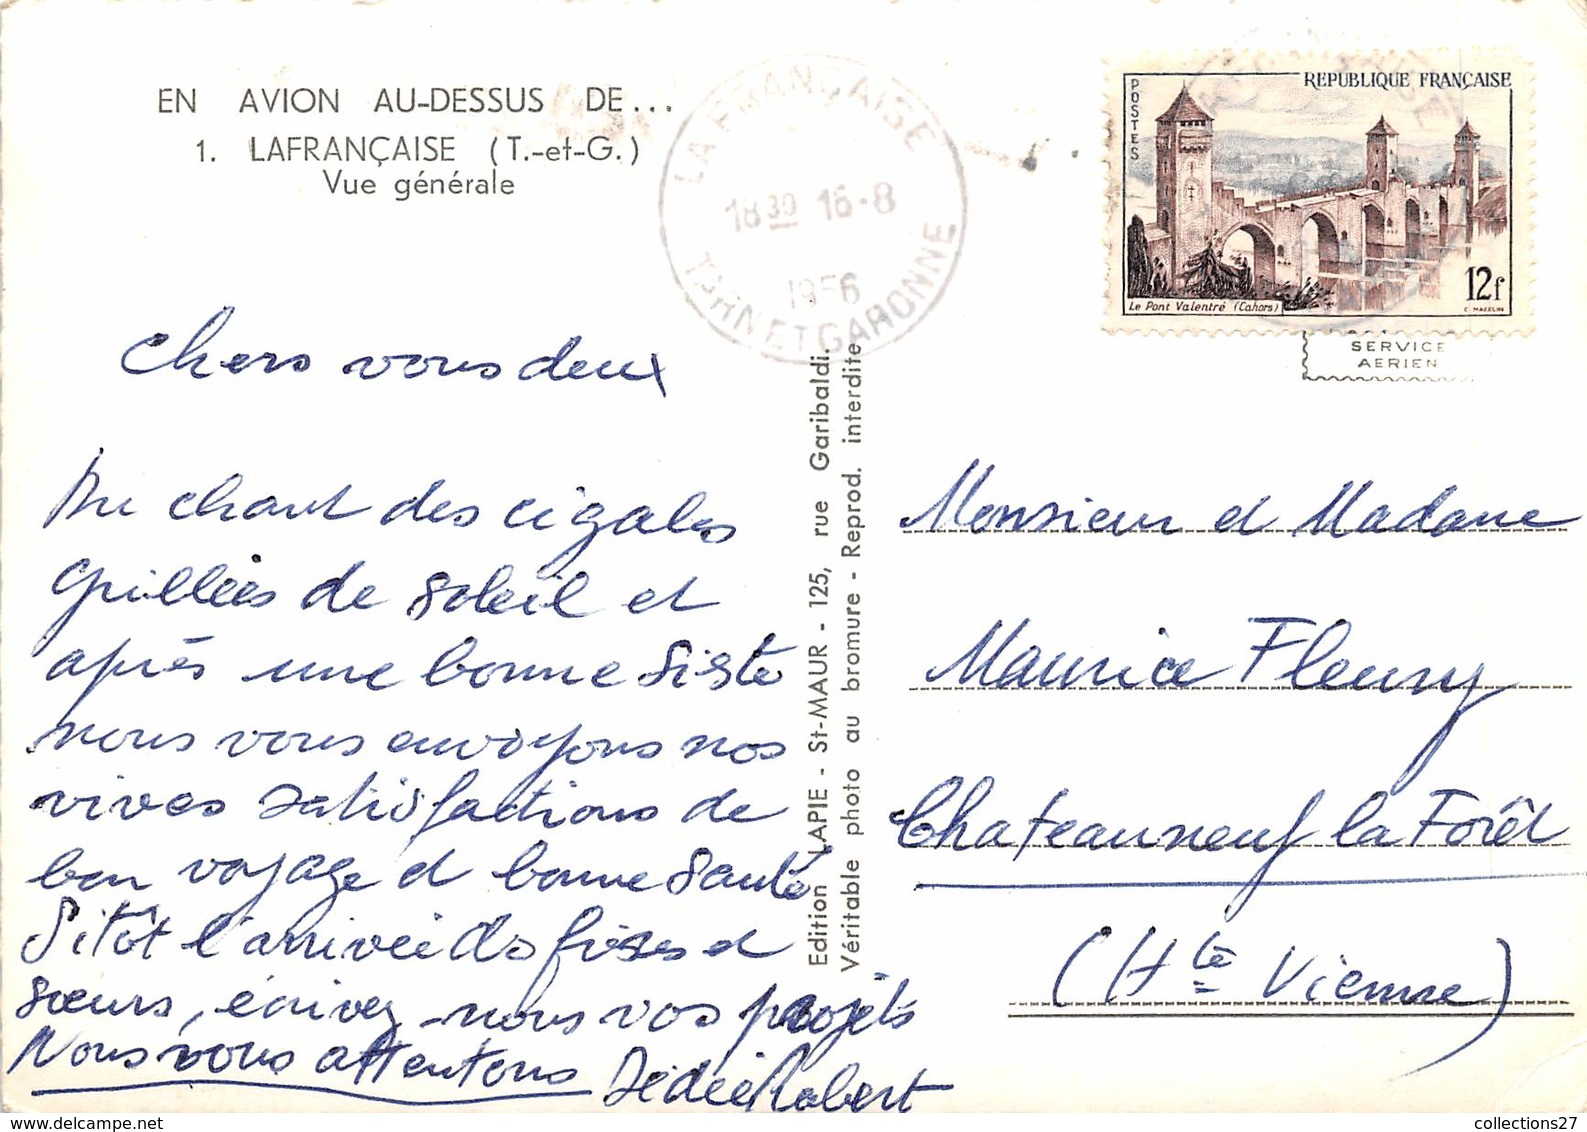 EN AVION AU-DESSUS DE...
1. LAFRANÇAISE (T.-et-G.)
Vue générale
LAFRANÇAISE
18 30 16-8
1956
TARN ET GARONNE
POSTES
REPUBLIQUE FRANÇAISE
Le Pont Valentré (Cahors)
12f
C. MAZELIN
SERVICE
AERIEN
Chers vous deux
Au chant des cigales
grillées de soleil et
après une bonne sieste
nous vous envoyons nos
vives satisfactions de
bon voyage et bonne santé
Sitôt l'arrivée ds frères et
sœurs, écrivez-nous vos projets
Nous vous attentons Dédée Robert
Edition LAPIE - St-MAUR - 125, rue Garibaldi.
Véritable photo au bromure - Reprod. interdite
Monsieur et Madame
Maurice Fleury
Chateauneuf la Forêt
(Hte Vienne)
collections27